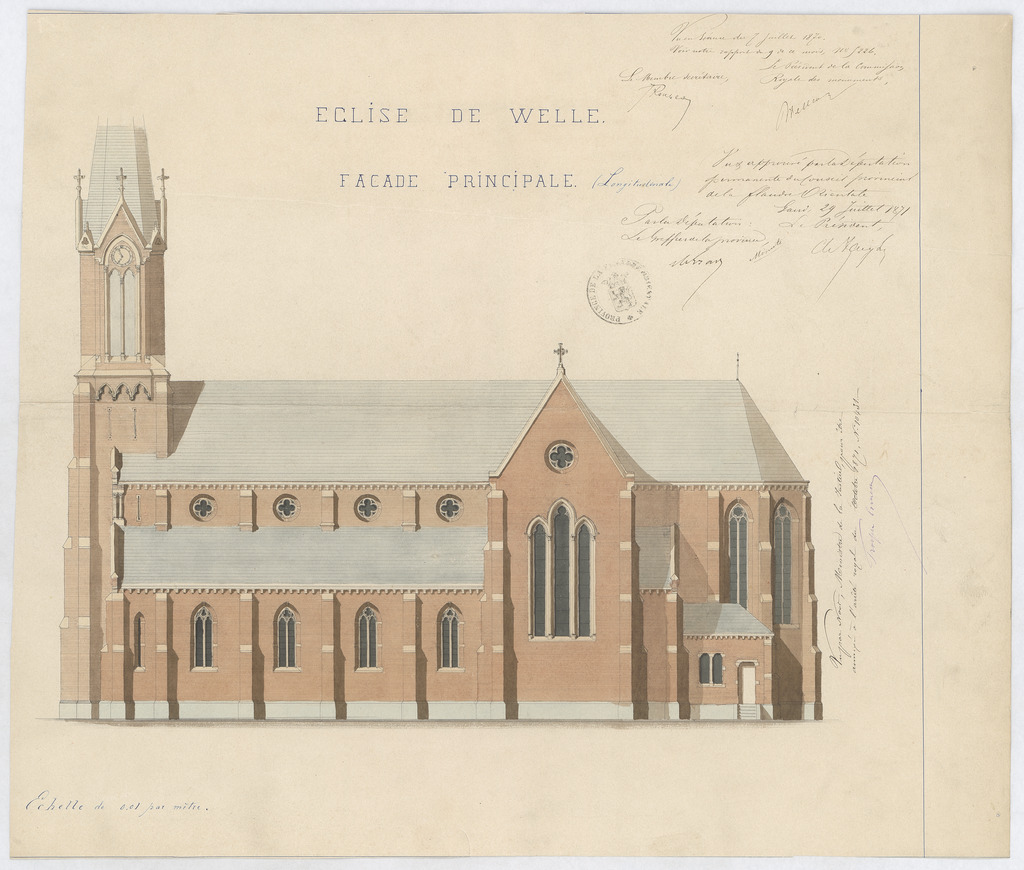 Vu en séance du 7 Juillet 1870.
Voir notre rapport du 9 de ce mois, No 5226.
Le Membre Secrétaire,
Le Président de la Commission
Royale des monuments,
EGLISE DE WELLE.
FACADE PRINCIPALE. (Longitudinale)
Vu & approuvé par la Députation
permanente du Conseil provincial
de la flandre Orientale
Gand, 29 Juillet 1871
Par la Députation:
Le Président,
Le Greffier de la province,
PROVINCE DE LA FLANDRE ORIENTALE
Vu par Nous, Ministre de la Justice, pour être
annexé à l'arrêté royal du octobre 1871, N
Echelle de 0.01 par mètre.